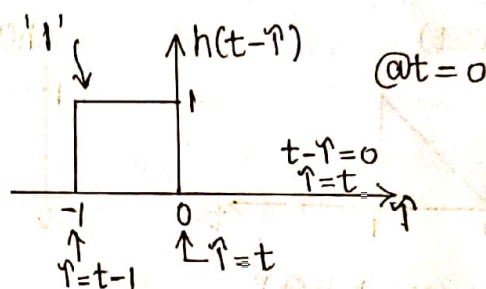 '1'
h(t-τ)
@t = 0
1
t-τ=0
τ=t
-1
0
τ
τ=t-1
τ=t